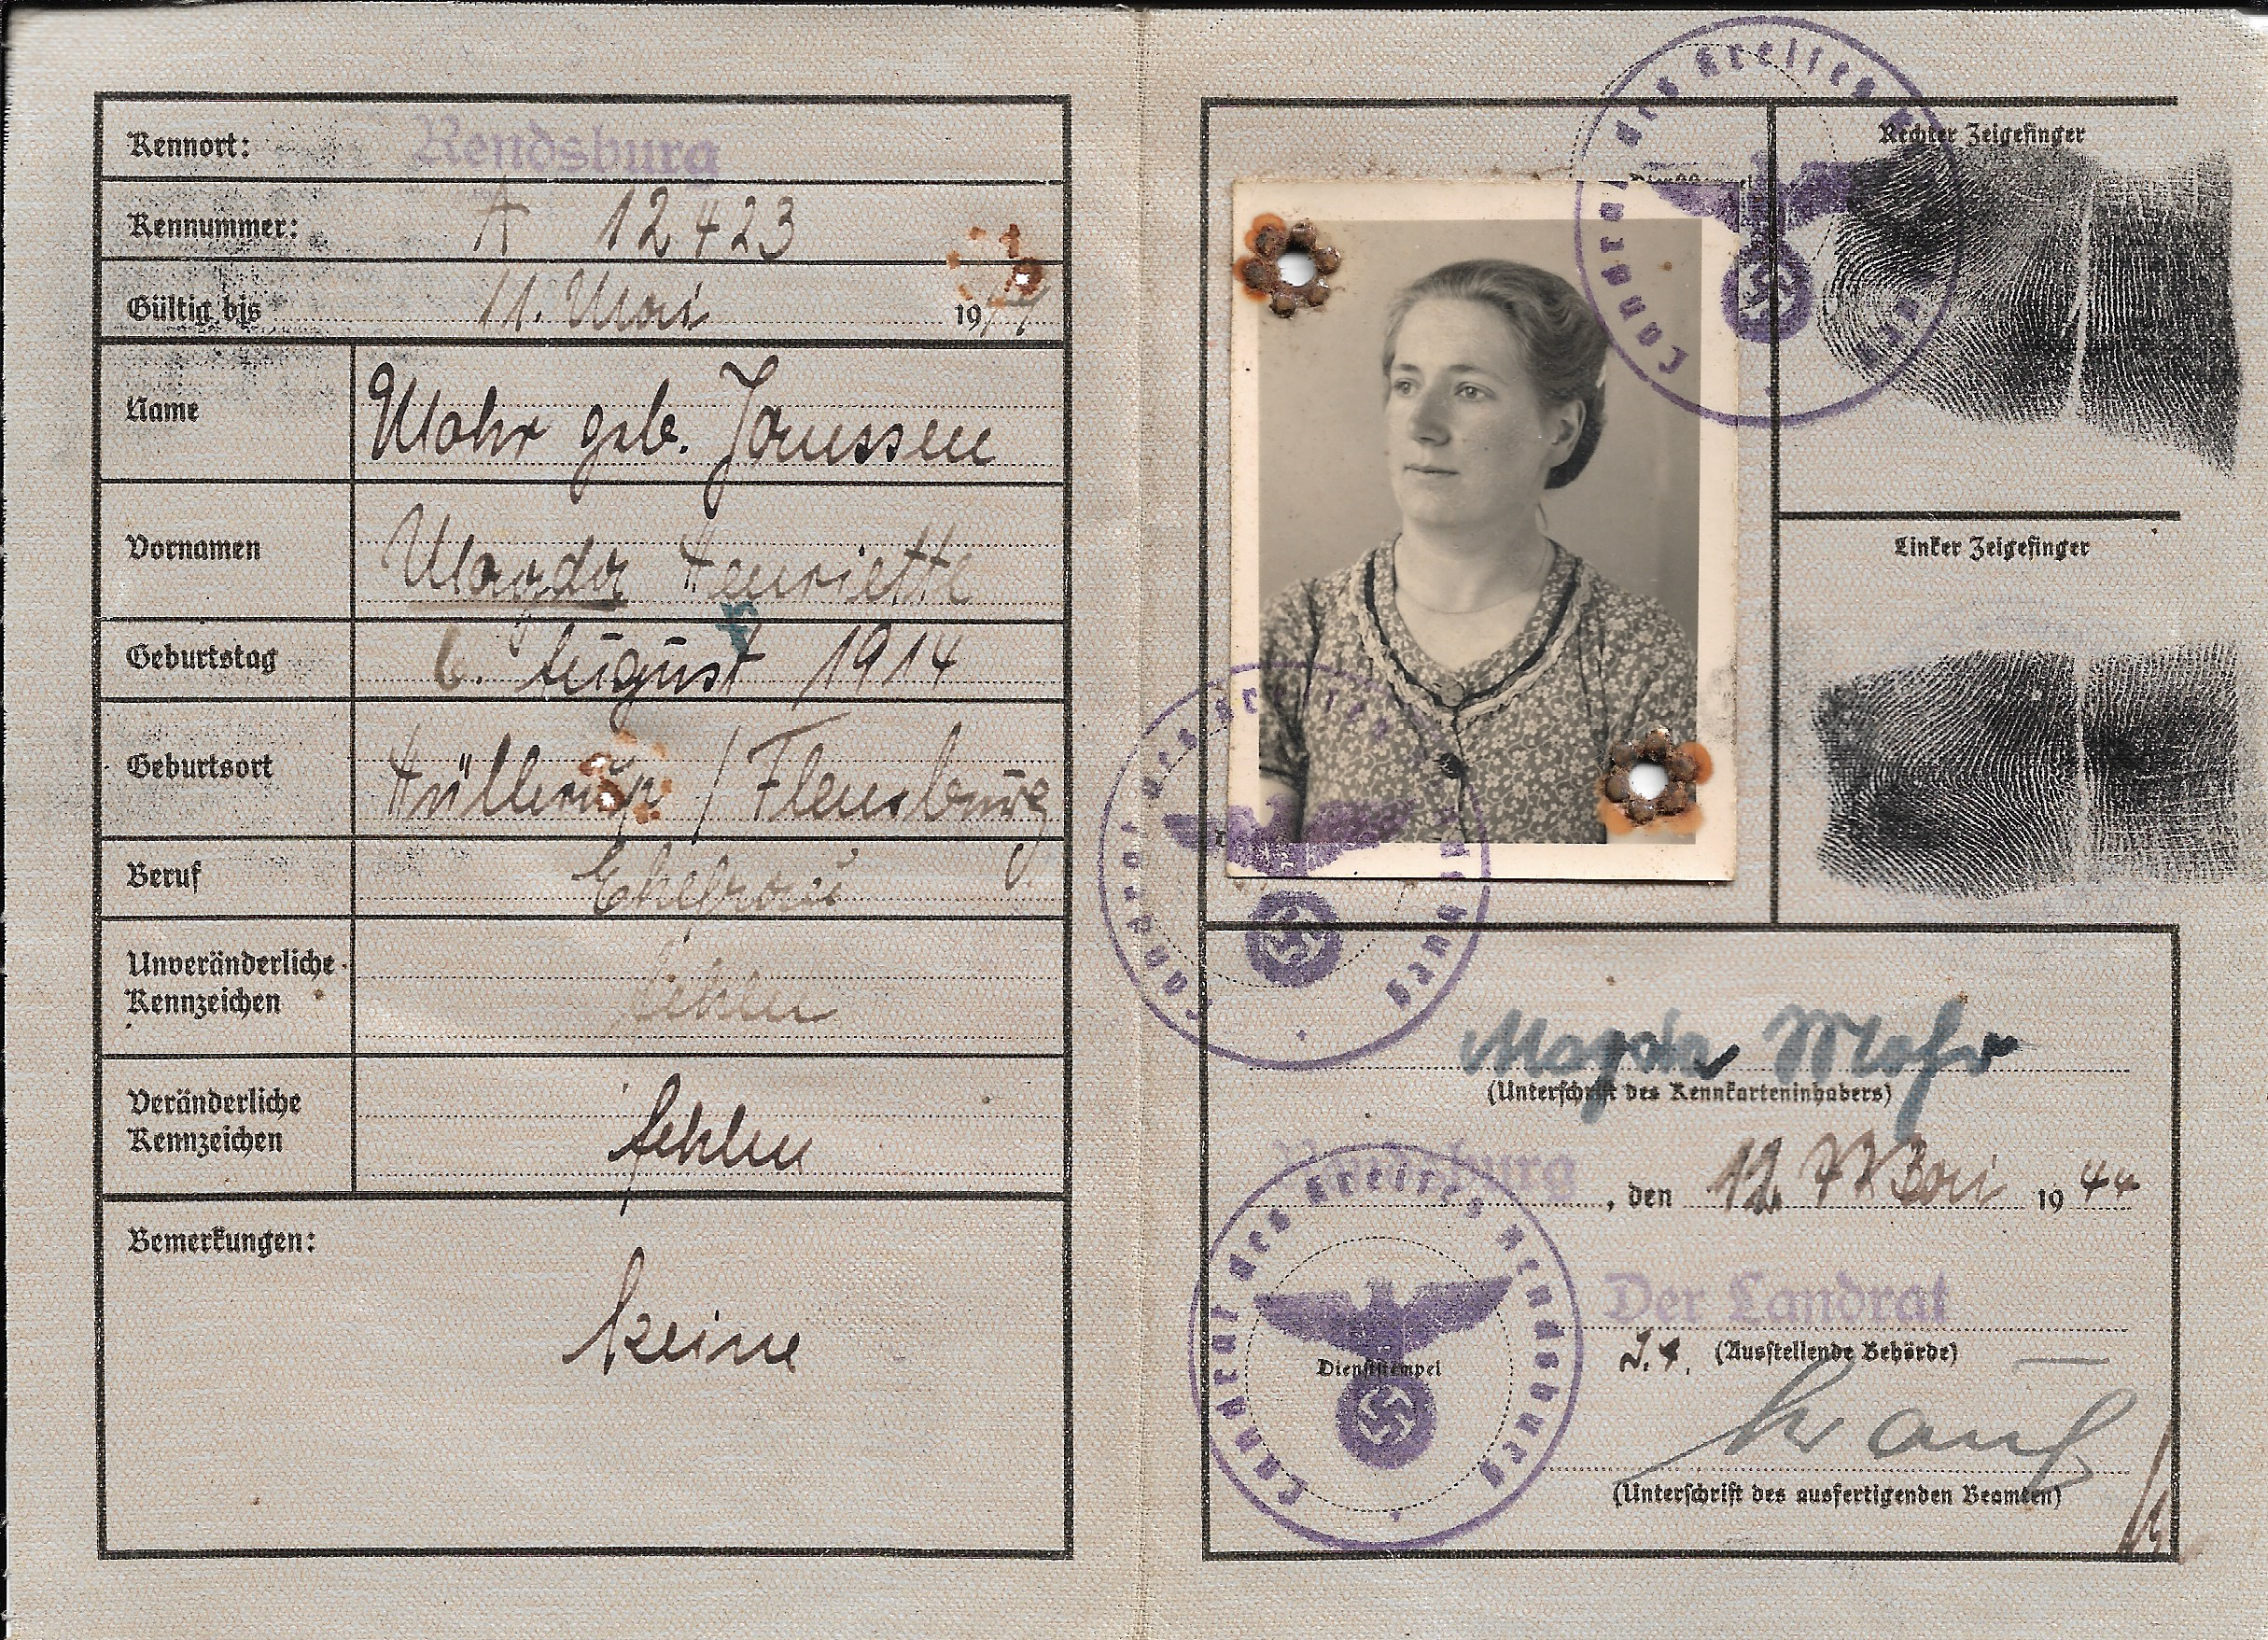 Kennort: Rendsburg
Kennummer: A 12423
Gültig bis 11. Mai 19
Name Mohr geb. Janssen
Vornamen Magda Henriette
Geburtstag 6. August 1914
Geburtsort Hüllerup / Flensburg
Beruf Ehefrau
Unveränderliche Kennzeichen fehlen
Veränderliche Kennzeichen fehlen
Bemerkungen: keine
Landrat des Kreises
Rechter Zeigefinger
Linker Zeigefinger
Landrat des Kreises Rendsburg
Magda Mohr
(Unterschrift des Kennkarteninhabers)
Rendsburg, den 12. Mai 1944
Der Landrat
(Ausstellende Behörde)
Landrat des Kreises Rendsburg
Dienststempel
(Unterschrift des ausfertigenden Beamten)